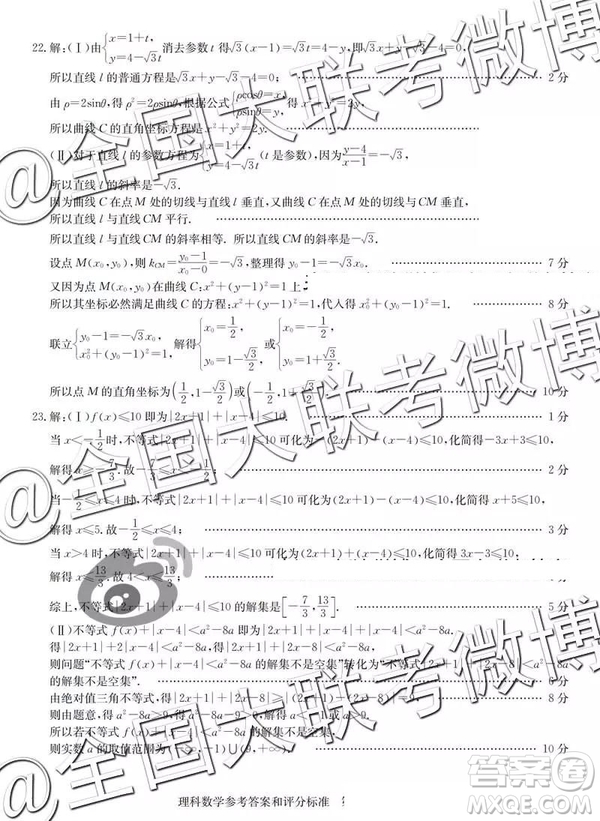 22.解:(Ⅰ)由{x=1+t, y=4-√3t 消去参数 t 得√3(x-1)=√3t=4-y,即√3x+y-√3-4=0.
所以直线 l 的普通方程是√3x+y-√3-4=0; 2分
由 ρ=2sinθ,得 ρ²=2ρsinθ,根据公式{ρcosθ=x, ρsinθ=y,
所以曲线 C 的直角坐标方程是 x²+y²=2y.
(Ⅱ)对于直线 l 的参数方程为{x=1+t, y=4-√3t (t 是参数),因为(y-4)/(x-1)=-√3,
所以直线 l 的斜率是-√3.
因为曲线 C 在点 M 处的切线与直线 l 垂直,又曲线 C 在点 M 处的切线与直线 CM 垂直,
所以直线 l 与直线 CM 平行.
所以直线 l 与直线 CM 的斜率相等. 所以直线 CM 的斜率为-√3.
设点 M(x₀,y₀),则 k_CM=(y₀-1)/(x₀-0)=-√3,整理得 y₀-1=-√3x₀. 7分
又因为点 M(x₀,y₀)在曲线 C:x²+(y-1)²=1 上,
所以其坐标必然满足曲线 C 的方程:x²+(y-1)²=1.代入得 x₀²+(y₀-1)²=1. 8分
联立{y₀-1=-√3x₀, x₀²+(y₀-1)²=1. 解得{x₀=1/2, y₀=1-√3/2 或{x₀=-1/2, y₀=1+√3/2.
所以点 M 的直角坐标为(1/2,1-√3/2)或(-1/2,1+√3/2). 10分
23.解:(Ⅰ)f(x)≤10 即为|2x+1|+|x-4|≤10. 1分
当 x<-1/2时,不等式|2x+1|+|x-4|≤10 可化为-(2x+1)-(x-4)≤10,化简得-3x+3≤10,
解得 x≥-7/3.故-7/3≤x<-1/2; 2分
当-1/2≤x≤4 时,不等式|2x+1|+|x-4|≤10 可化为(2x+1)-(x-4)≤10,化简得 x+5≤10,
解得 x≤5.故-1/2≤x≤4; 3分
当 x>4 时,不等式|2x+1|+|x-4|≤10 可化为(2x+1)+(x-4)≤10,化简得 3x-3≤10,
解得 x≤13/3.故 4<x≤13/3;
综上,不等式|2x+1|+|x-4|≤10 的解集是[-7/3,13/3]. 5分
(Ⅱ)不等式 f(x)+|x-4|<a²-8a 即为|2x+1|+|x-4|+|x-4|<a²-8a.
得|2x+1|+|2x-8|<a²-8a.
则问题“不等式 f(x)+|x-4|<a²-8a 的解集不是空集”转化为“不等式|2x+1|+|2x-8|<a²-8a
的解集不是空集”. 6分
由绝对值三角不等式,得|2x+1|+|2x-8|≥|(2x+1)-(2x-8)|=9. 8分
则由题意,得 a²-8a>9,得 a²-8a-9>0,解得 a<-1 或 a>9.
所以若不等式 f(x)+|x-4|<a²-8a 的解集不是空集,
则实数 a 的取值范围为(-∞,-1)∪(9,+∞). 10分
理科数学参考答案和评分标准
@全国大联考微博
@全国大联考微博
答案圈
MXQE.COM